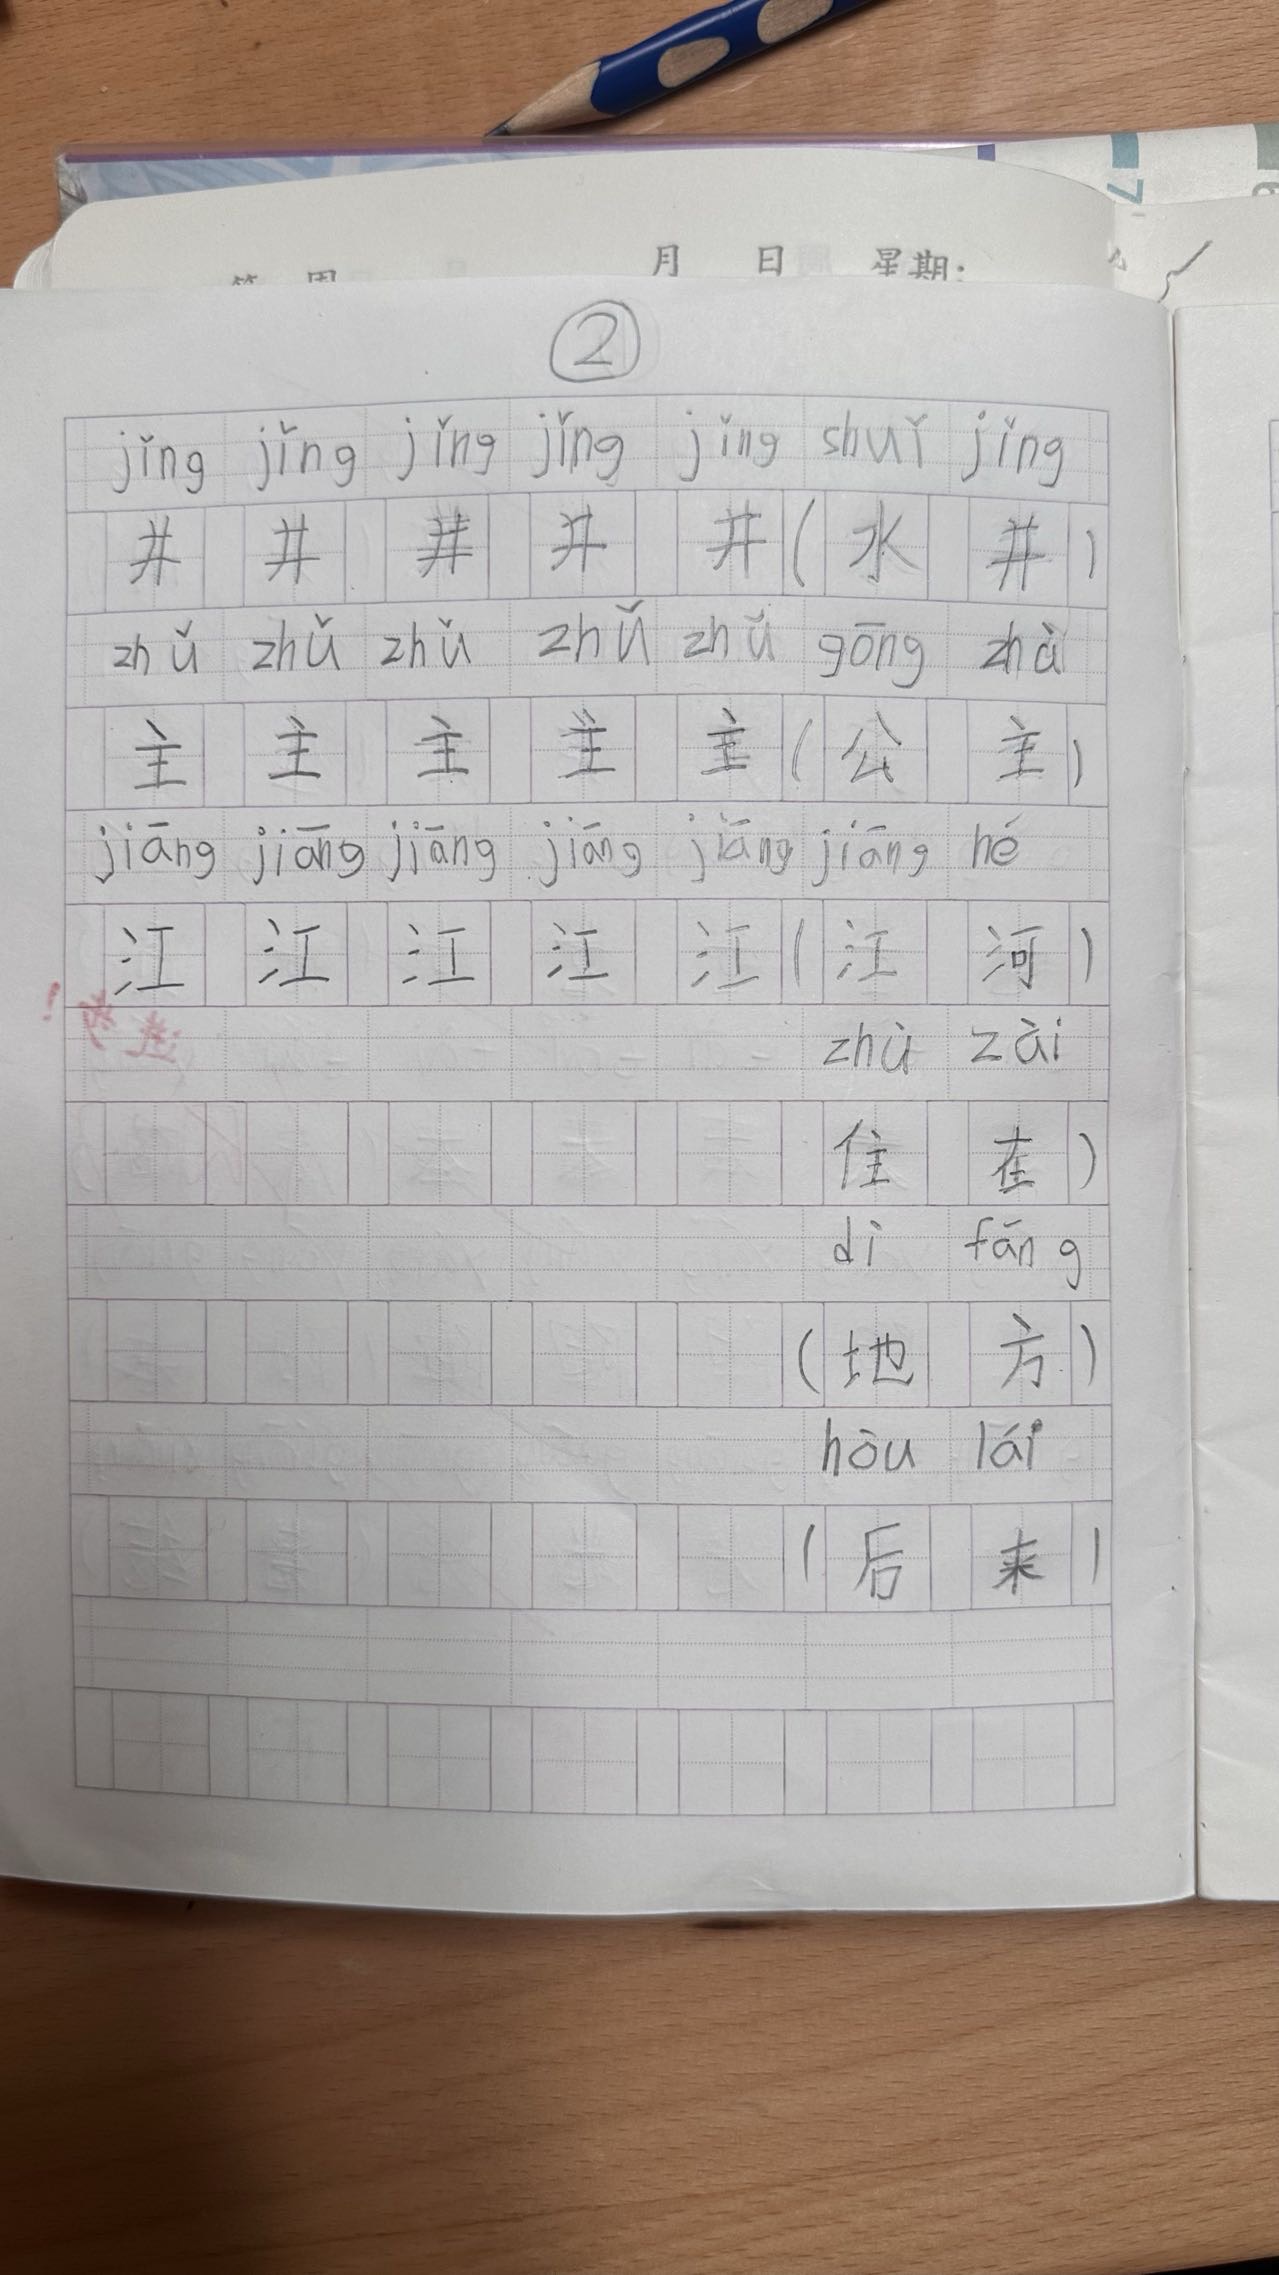 月 日 星期:
②
jǐng jǐng jǐng jǐng jǐng shuǐ jǐng
井 井 井 井 井 ( 水 井 )
zhǔ zhǔ zhǔ zhǔ zhǔ gōng zhà
主 主 主 主 主 ( 公 主 )
jiāng jiāng jiāng jiāng jiāng jiāng hé
江 江 江 江 江 ( 江 河 )
zhù zài
住 在 )
dì fāng
( 地 方 )
hòu lái
( 后 来 )